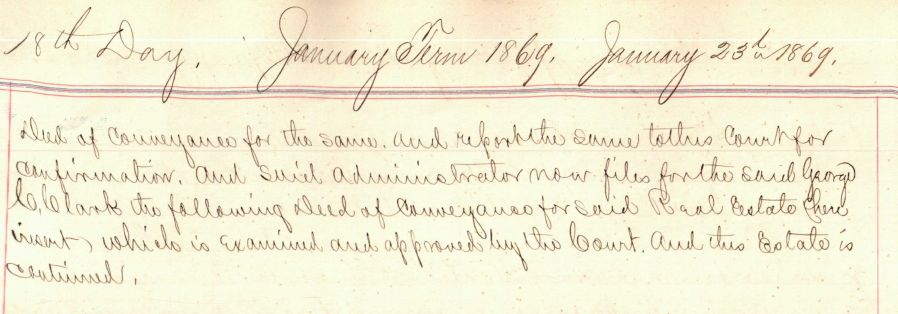 18th Day. January Term 1869. January 23d 1869.
Deed of Conveyance for the same. And report the same to this Court for
confirmation. And said administrator now files for the said George
C. Clark the following Deed of Conveyance for said Real Estate (here
insert) which is examined and approved by the Court. And this Estate is
continued.